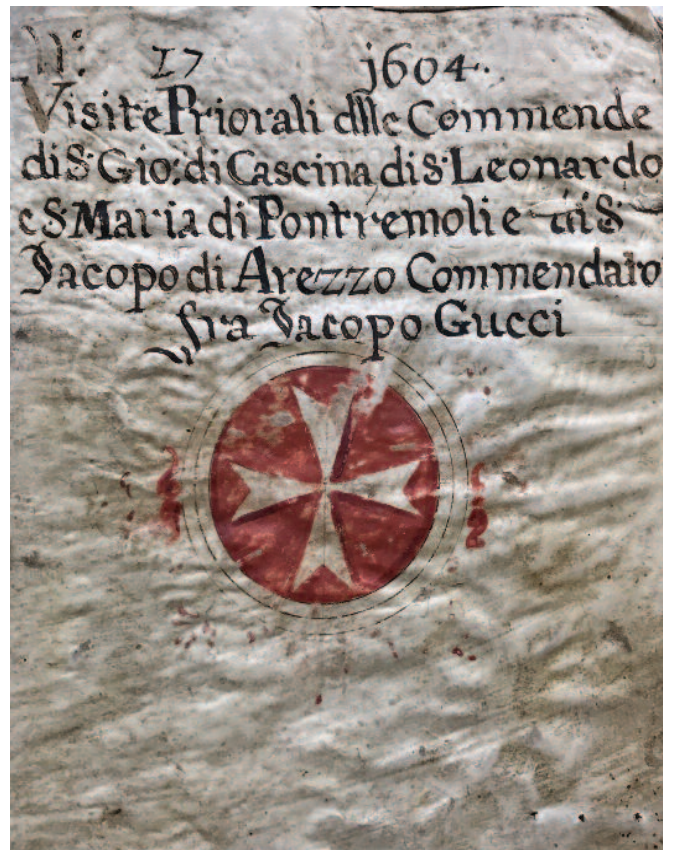 N: 17 j604.
Visite Priorali dlle Commende
di S. Gio: di Cascina di S. Leonardo
e S. Maria di Pontremoli e di S.
Jacopo di Arezzo Commendato
fra Jacopo Gucci